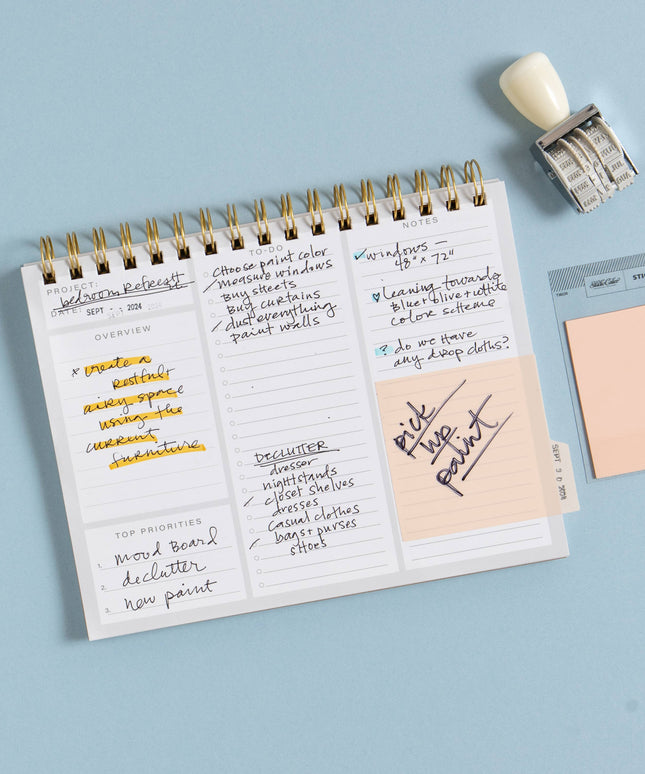 PROJECT:
bedroom Refresh
DATE: SEPT 2024
OVERVIEW
x create a
restful +
airy space
using the
current
furniture
TOP PRIORITIES
1. mood Board
2. declutter
3. new paint
TO-DO
choose paint color
measure windows
Buy sheets
Buy curtains
dust everything
paint walls
DECLUTTER
dresser
nightstands
closet shelves
dresses
casual clothes
bags + purses
shoes
NOTES
windows —
48" x 72"
leaning towards
Blue + olive + white
color scheme
? do we have
any drop cloths?
pick
up
paint
SEPT 2024